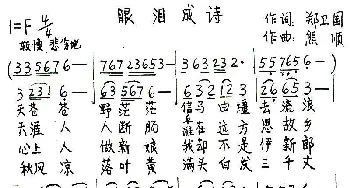 眼泪成诗
1=F 4/4
较慢 悲伤地
作词: 郑卫国
作曲: 熊顺
(335676-|7673653-|363232·|557656-)
3231 6-|6356 76-|632123|26653-
天苍苍 野茫茫 信马由缰 去流浪
天涯人 人断肠 谁在远方 思故乡
心上人 做新娘 我却不是 伊新郎
秋风凉 落叶黄 满头白发 三千丈